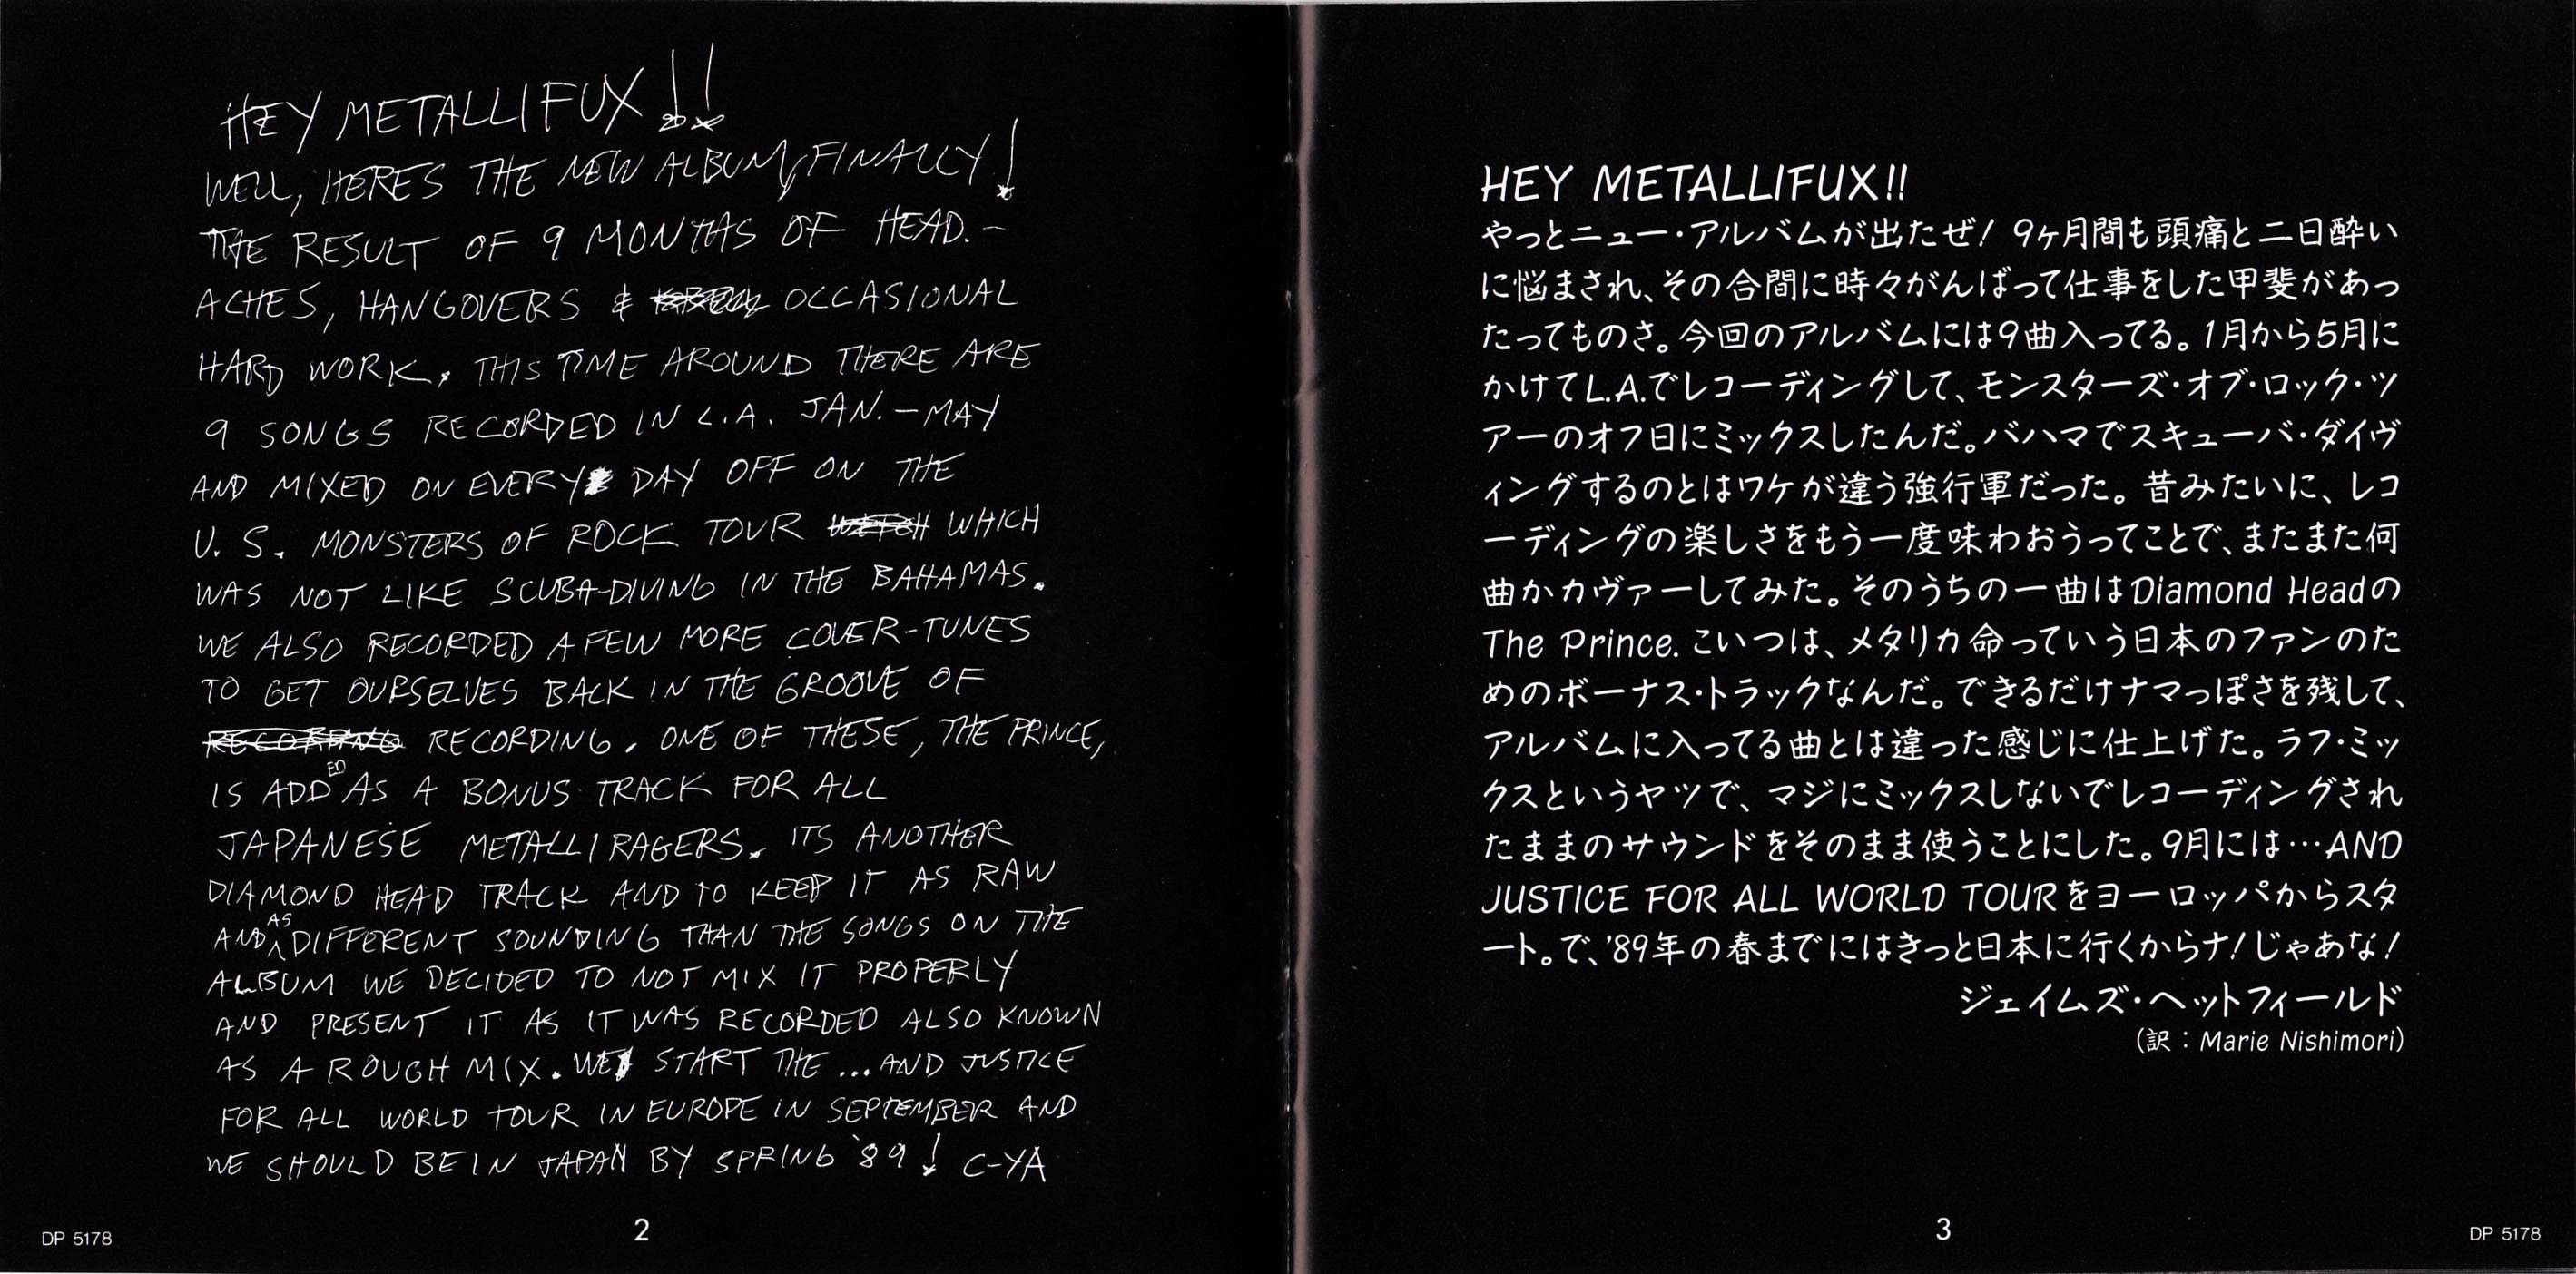 HEY METALLIFUX!!
WELL, HERES THE NEW ALBUM, FINALLY!
THE RESULT OF 9 MONTHS OF HEAD.-
ACHES, HANGOVERS & OCCASIONAL
HARD WORK. THIS TIME AROUND THERE ARE
9 SONGS RECORDED IN L.A. JAN.-MAY
AND MIXED ON EVERY DAY OFF ON THE
U.S. MONSTERS OF ROCK TOUR WHICH
WAS NOT LIKE SCUBA-DIVING IN THE BAHAMAS.
WE ALSO RECORDED A FEW MORE COVER-TUNES
TO GET OURSELVES BACK IN THE GROOVE OF
RECORDING RECORDING. ONE OF THESE, THE PRINCE,
IS ADDED AS A BONUS TRACK FOR ALL
JAPANESE METALLIRAGERS. ITS ANOTHER
DIAMOND HEAD TRACK AND TO KEEP IT AS RAW
AND AS DIFFERENT SOUNDING THAN THE SONGS ON THE
ALBUM WE DECIDED TO NOT MIX IT PROPERLY
AND PRESENT IT AS IT WAS RECORDED ALSO KNOWN
AS A ROUGH MIX. WE START THE ...AND JUSTICE
FOR ALL WORLD TOUR IN EUROPE IN SEPTEMBER AND
WE SHOULD BE IN JAPAN BY SPRING '89! C-YA
2
DP 5178
HEY METALLIFUX!!
やっとニュー・アルバムが出たぜ! 9ヶ月間も頭痛と二日酔い
に悩まされ、その合間に時々がんばって仕事をした甲斐があっ
たってものさ。今回のアルバムには9曲入ってる。1月から5月に
かけてL.A.でレコーディングして、モンスターズ・オブ・ロック・ツ
アーのオフ日にミックスしたんだ。バハマでスキューバ・ダイヴ
ィングするのとはワケが違う強行軍だった。昔みたいに、レコ
ーディングの楽しさをもう一度味わおうってことで、またまた何
曲かカヴァーしてみた。そのうちの一曲はDiamond Headの
The Prince. こいつは、メタリカ命っていう日本のファンのた
めのボーナス・トラックなんだ。できるだけナマっぽさを残して、
アルバムに入ってる曲とは違った感じに仕上げた。ラフ・ミッ
クスというヤツで、マジにミックスしないでレコーディングされ
たままのサウンドをそのまま使うことにした。9月には…AND
JUSTICE FOR ALL WORLD TOURをヨーロッパからスタ
ート。で、'89年の春までにはきっと日本に行くからナ! じゃあな!
ジェイムズ・ヘットフィールド
(訳:Marie Nishimori)
3
DP 5178